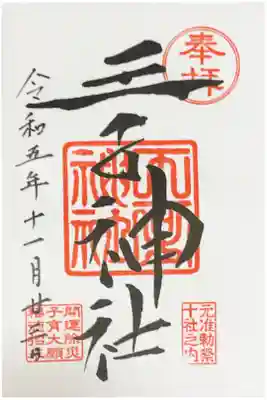 奉拝
王子神社
王子神社
元准勅祭
十社之内
令和五年十一月廿三日
開運除災
子育大願